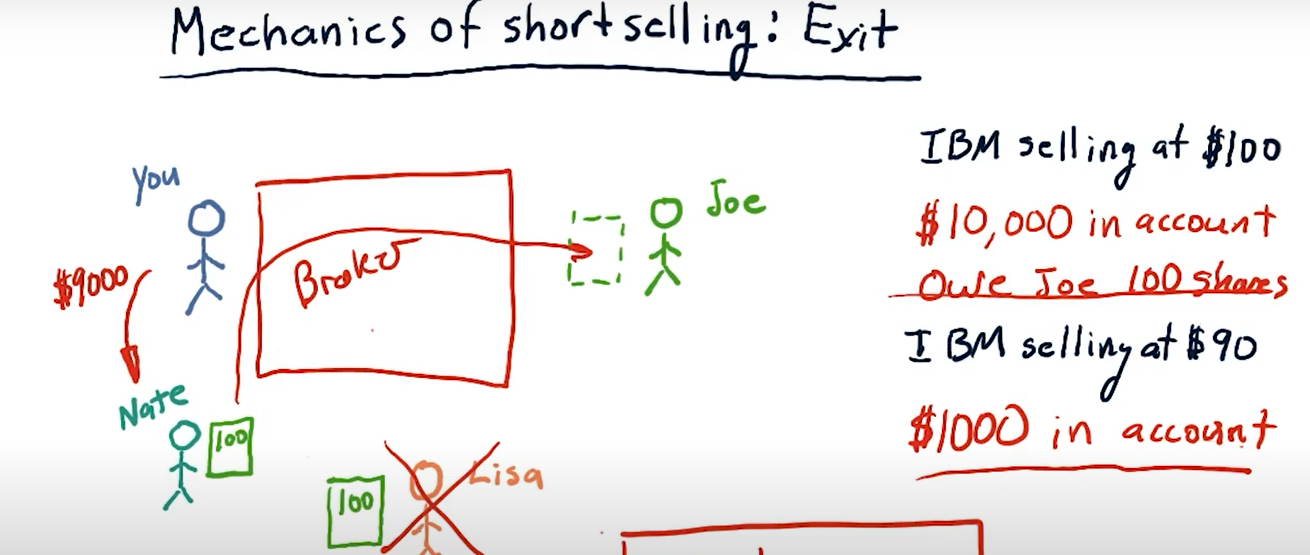 Mechanics of shortselling: Exit
You
Joe
Broker
$9000
Nate
100
100
Lisa
IBM selling at $100
$10,000 in account
Owe Joe 100 shares
IBM selling at $90
$1000 in account